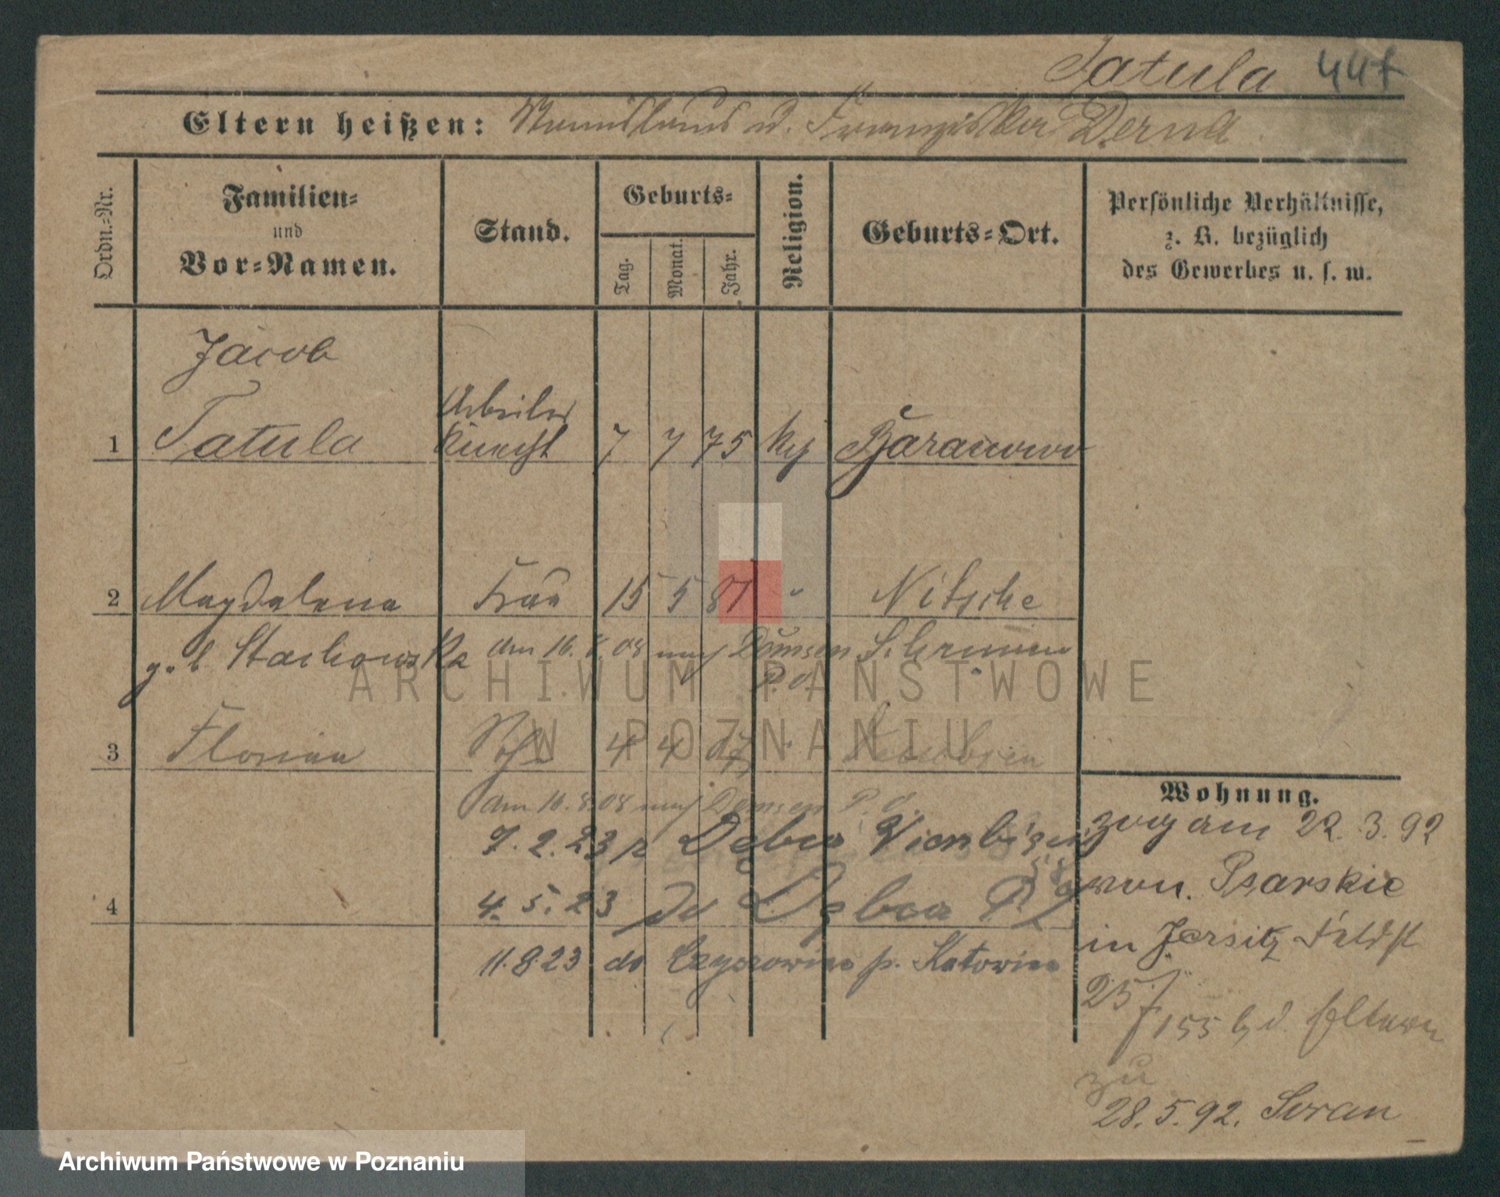 Tatula 447
Eltern heißen: Stanislaus u. Franziska Derna
Ordn.-Nr.
Familien-
und
Vor-Namen.
Stand.
Geburts-
Tag.
Monat.
Jahr.
Religion.
Geburts-Ort.
Persönliche Verhältnisse,
z. B. bezüglich
des Gewerbes u. s. w.
Jacob
Arbeiter
1 Tatula Knecht 7 7 75 kg Baranowo
2 Magdalena Frau 15 5 81 " Nitsche
geb Stachowska am 16. 8. 08 nach Domsen Schrimm
P. d.
3 Florian Sohn 4 4 07
am 16.8.08 nach Domsen P. d.
7.2.23 z Dębca
4
4.5.23 do Dębca
11.8.23 do p. Katowice
Wohnung.
zog am 22.3.92
von Psarskie
in Jersitz Feldst
25
155 b/ d. Eltern
zu
28.5.92. Soran
ARCHIWUM PAŃSTWOWE
W POZNANIU
Archiwum Państwowe w Poznaniu